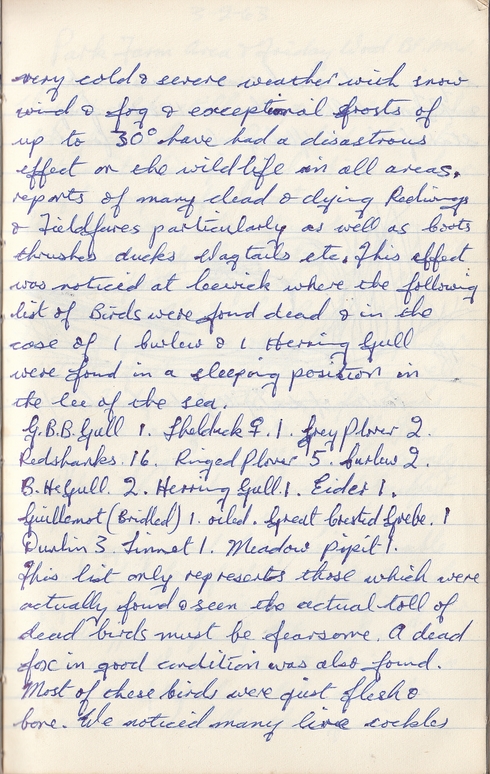 very cold & severe weather with snow
wind & fog & exceptional frosts of
up to 30° have had a disastrous
effect on the wildlife in all areas,
reports of many dead & dying Redwings
& Fieldfares particularly as well as Coots
thrushes ducks Wagtails etc. This effect
was noticed at where the following
list of Birds were found dead & in the
case of 1 Curlew & 1 Herring Gull
were found in a sleeping position in
the lee of the sea.
G.B.B. Gull 1. Shelduck ♀. 1. Grey Plover 2.
Redshanks. 16. Ringed Plover 5. Curlew 2.
B. H. Gull. 2. Herring Gull. 1. Eider 1.
Guillemot (Bridled) 1. oiled. Great Crested Grebe. 1
Dunlin 3. Linnet 1. Meadow Pipit 1.
This list only represents those which were
actually found & seen the actual toll of
dead birds must be fearsome. A dead
fox in good condition was also found.
Most of these birds were just flesh &
bone. We noticed many live cockles